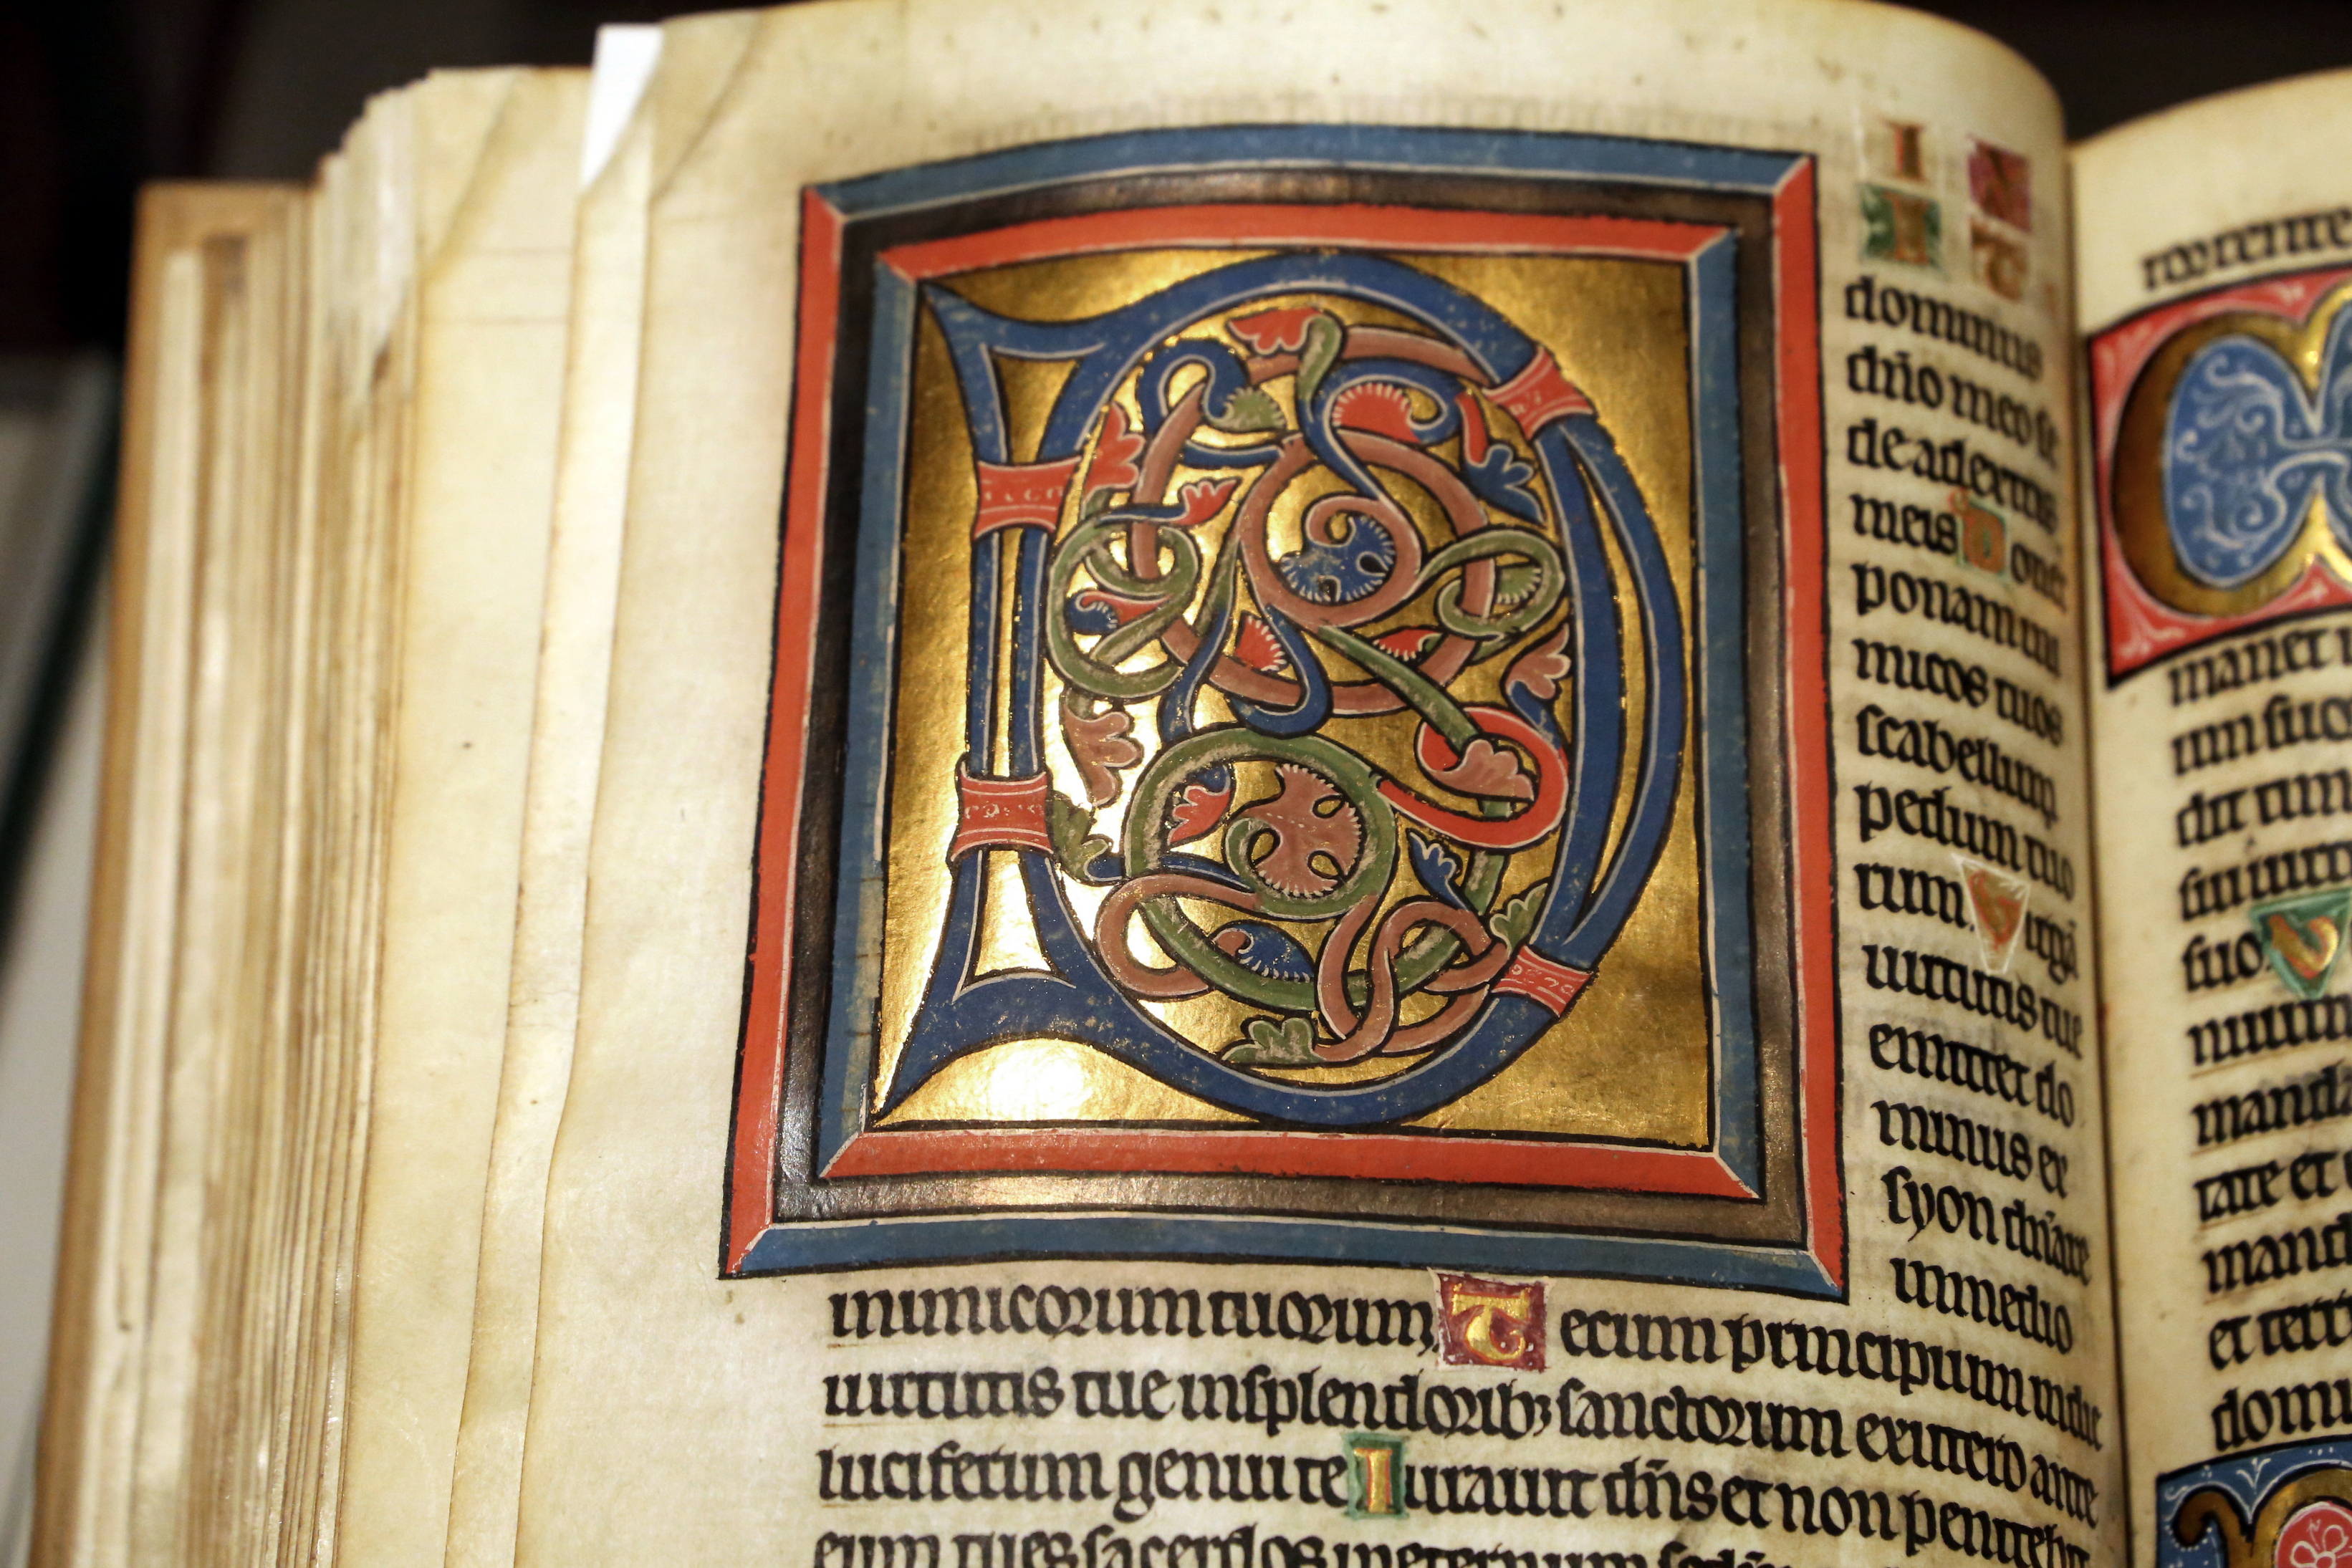 D
I X
I T
dominus
dño meo se
de adextris
meis D onec
ponam ini
micos tuos
scabellum
pedum tuo
rum. V irgã
uirtutis tue
emittet do
minus ex
syon dñare
in medio
inimicorum tuorum. T ecum principium indie
uirtutis tue insplendorib; sanctorum exutero ante
luciferum genui te I urauit dñs et non penitebit
eum tu es sacerdos ineternum
manet
um suo
dit tim
sui
suo. V
mand
tate et
mand
et terr
domi